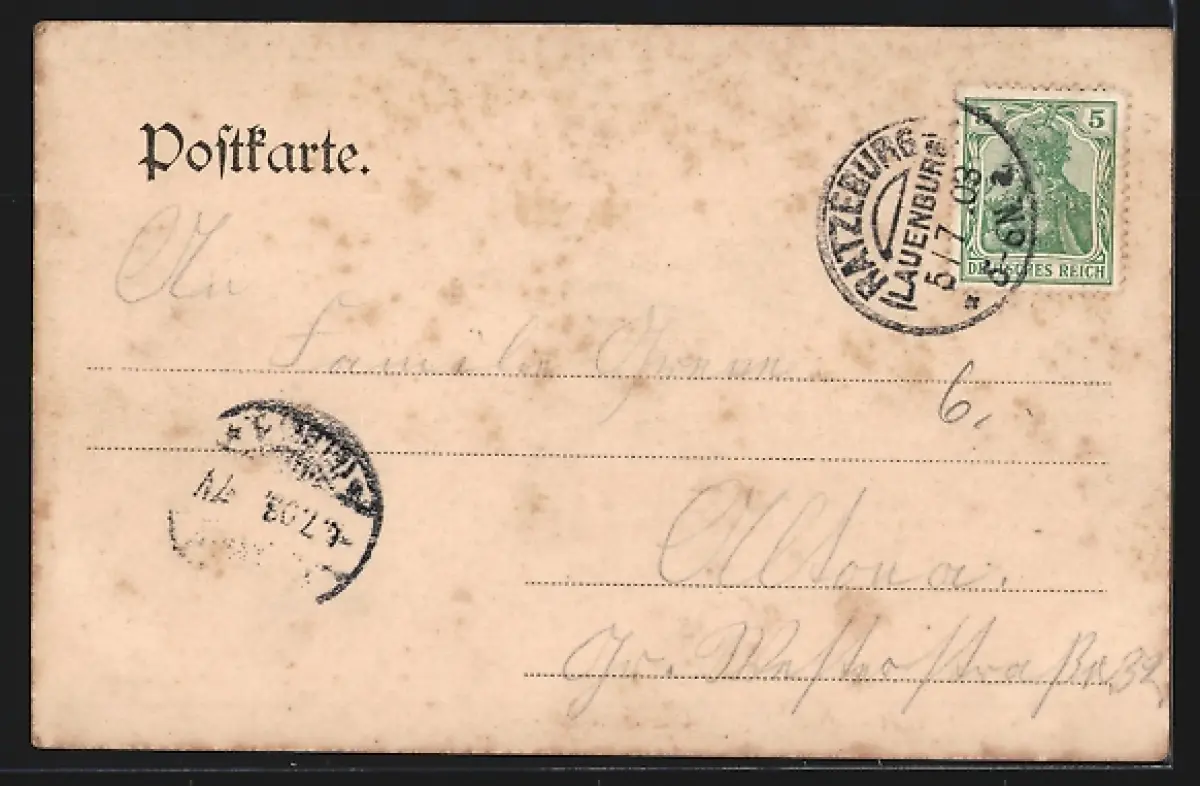 Postkarte.
5 5
DEUTSCHES REICH
RATZEBURG
(LAUENBURG)
5/7 03
5-6N. a.
An
Familie
6.
Altona.
Gr. Westerstraße 32
7.03. 7N